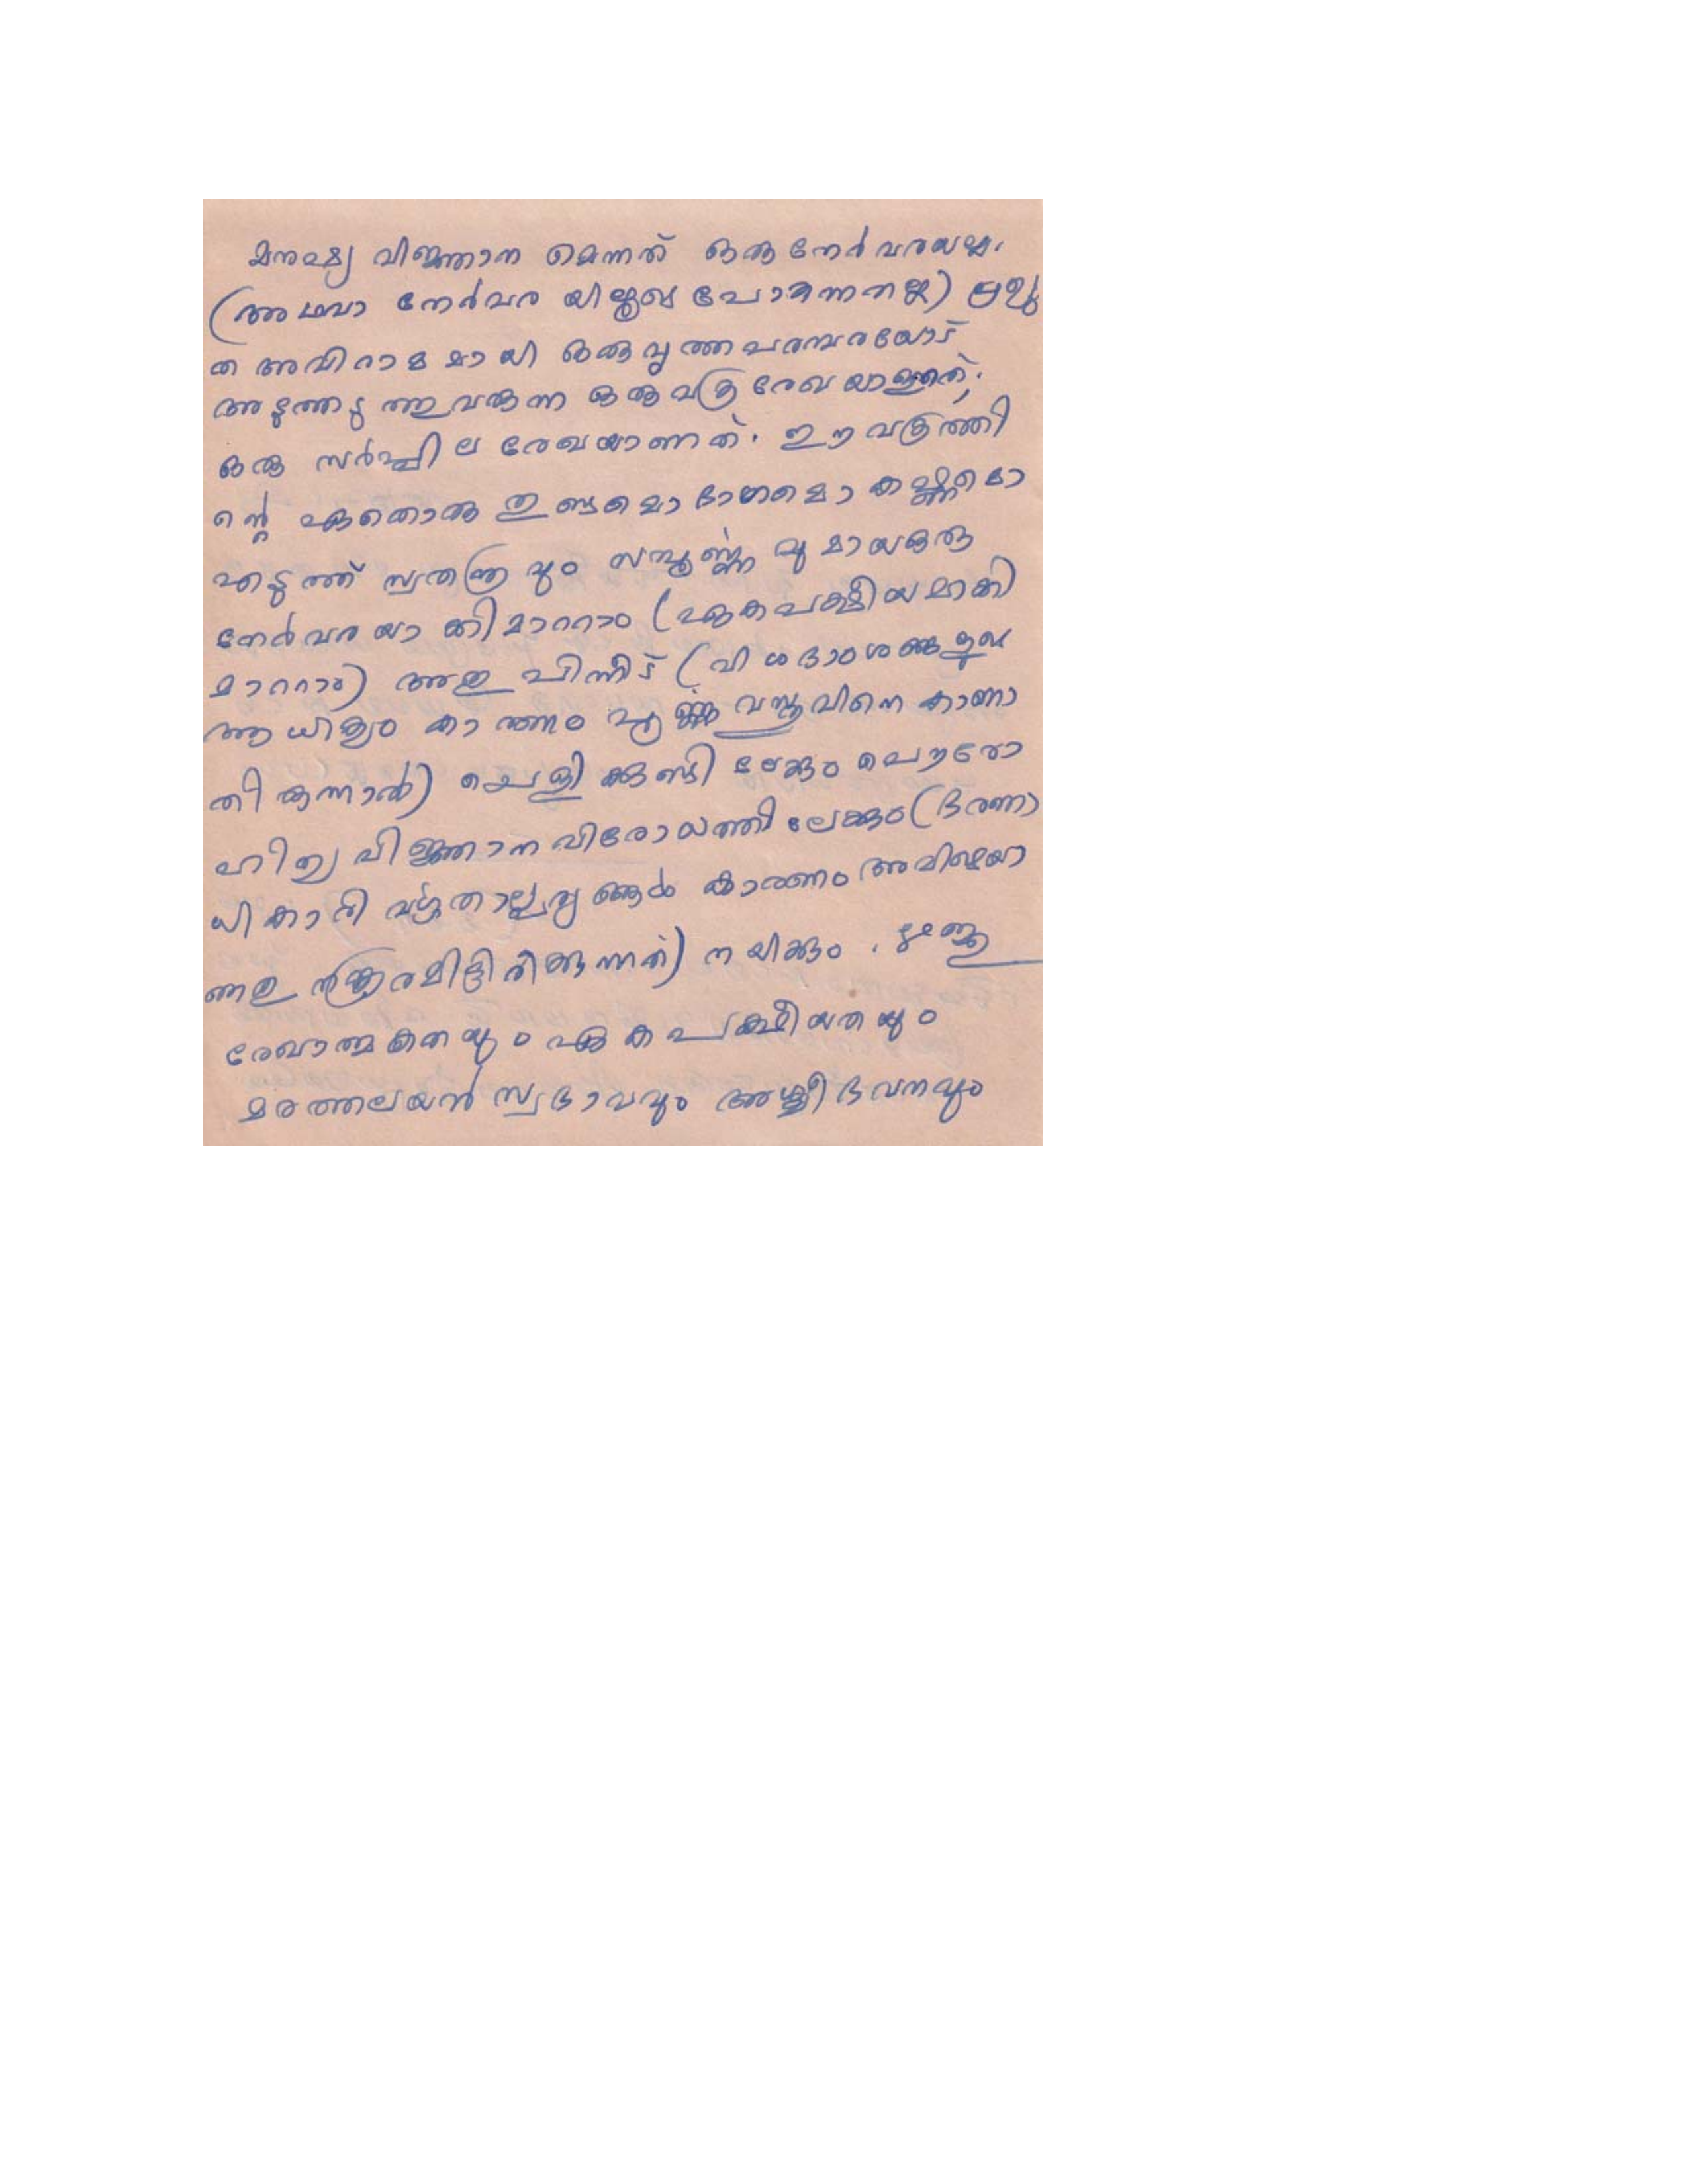 മനുഷ്യ വിജ്ഞാന മെന്നത് ഒരു നേർ വരയല്ല.
(അഥവാ നേർവര യിലൂടെ പോകുന്നതല്ല) മറിച്ചു
ത അവിരാമ മായി ഒരു വൃത്തപരമ്പരയോട്
അടുത്തടു ത്തുവരുന്ന ഒരു വക്ര രേഖ യാണത്;
ഒരു സർപ്പില രേഖയാണത്. ഈ വക്രത്തി
ന്റെ ഏതൊരു തുണ്ടമൊ ഭാഗമൊ കഷ്ണമൊ
എടുത്ത് സ്വതന്ത്ര വും സമ്പൂർണ്ണ വു മായ ഒരു
നേർ വര യാ ക്കി മാററാം (ഏകപക്ഷീയ മാക്കി
മാററാം) അതു പിന്നീട് (വി ശദാംശങ്ങളുടെ
ആധിക്യം കാ രണം പൂർണ്ണ വസ്തുവിനെ കാണാ
തി രുന്നാൽ) ചെളി ക്കുണ്ടി ലേക്കും പൌരോ
ഹിത്യ വിജ്ഞാന വിരോധത്തി ലേക്കും (ഭരണാ
ധി കാരി വർഗ്ഗതാല്പര്യ ങ്ങൾ കാരണം അവിടെയാ
ണതു നങ്കൂരമിട്ടിരിക്കുന്നത്) ന യിക്കും .
രേഖാത്മ കതയും ഏ ക പക്ഷീയതയും
മരത്തലയൻ സ്വഭാവവും അശ്മീ ഭവനവും